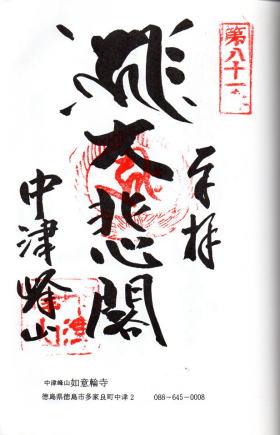 第八十一
奉拝
大悲閣
中津峰山
中津峰山如意輪寺
徳島県徳島市多家良町中津2 088-645-0008